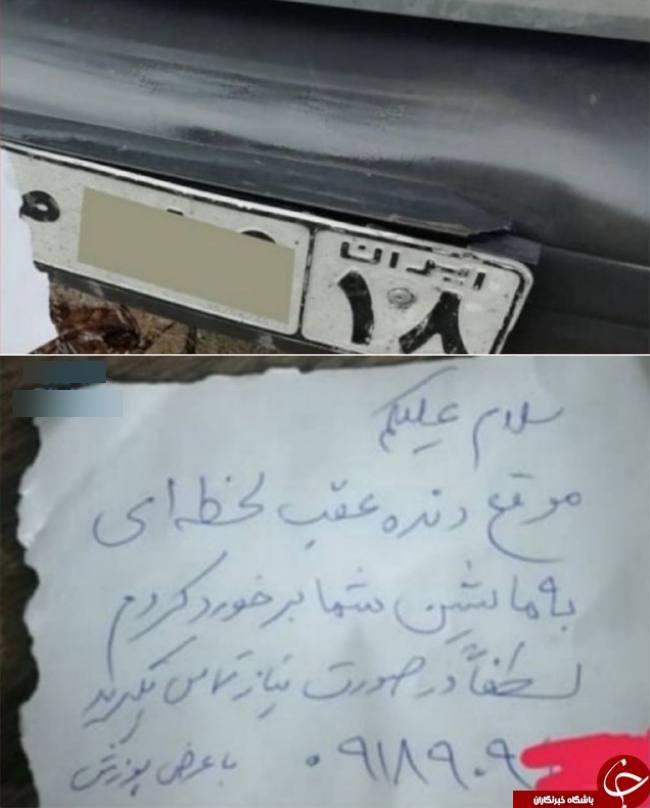 ایران
۱۸
سلام علیکم
موقع دنده عقب لحظه‌ای
به ماشین شما برخورد کردم
لطفاً در صورت نیاز تماس بگیرید
۰۹۱۸۹۰۹
با عرض پوزش
باشگاه خبرنگاران